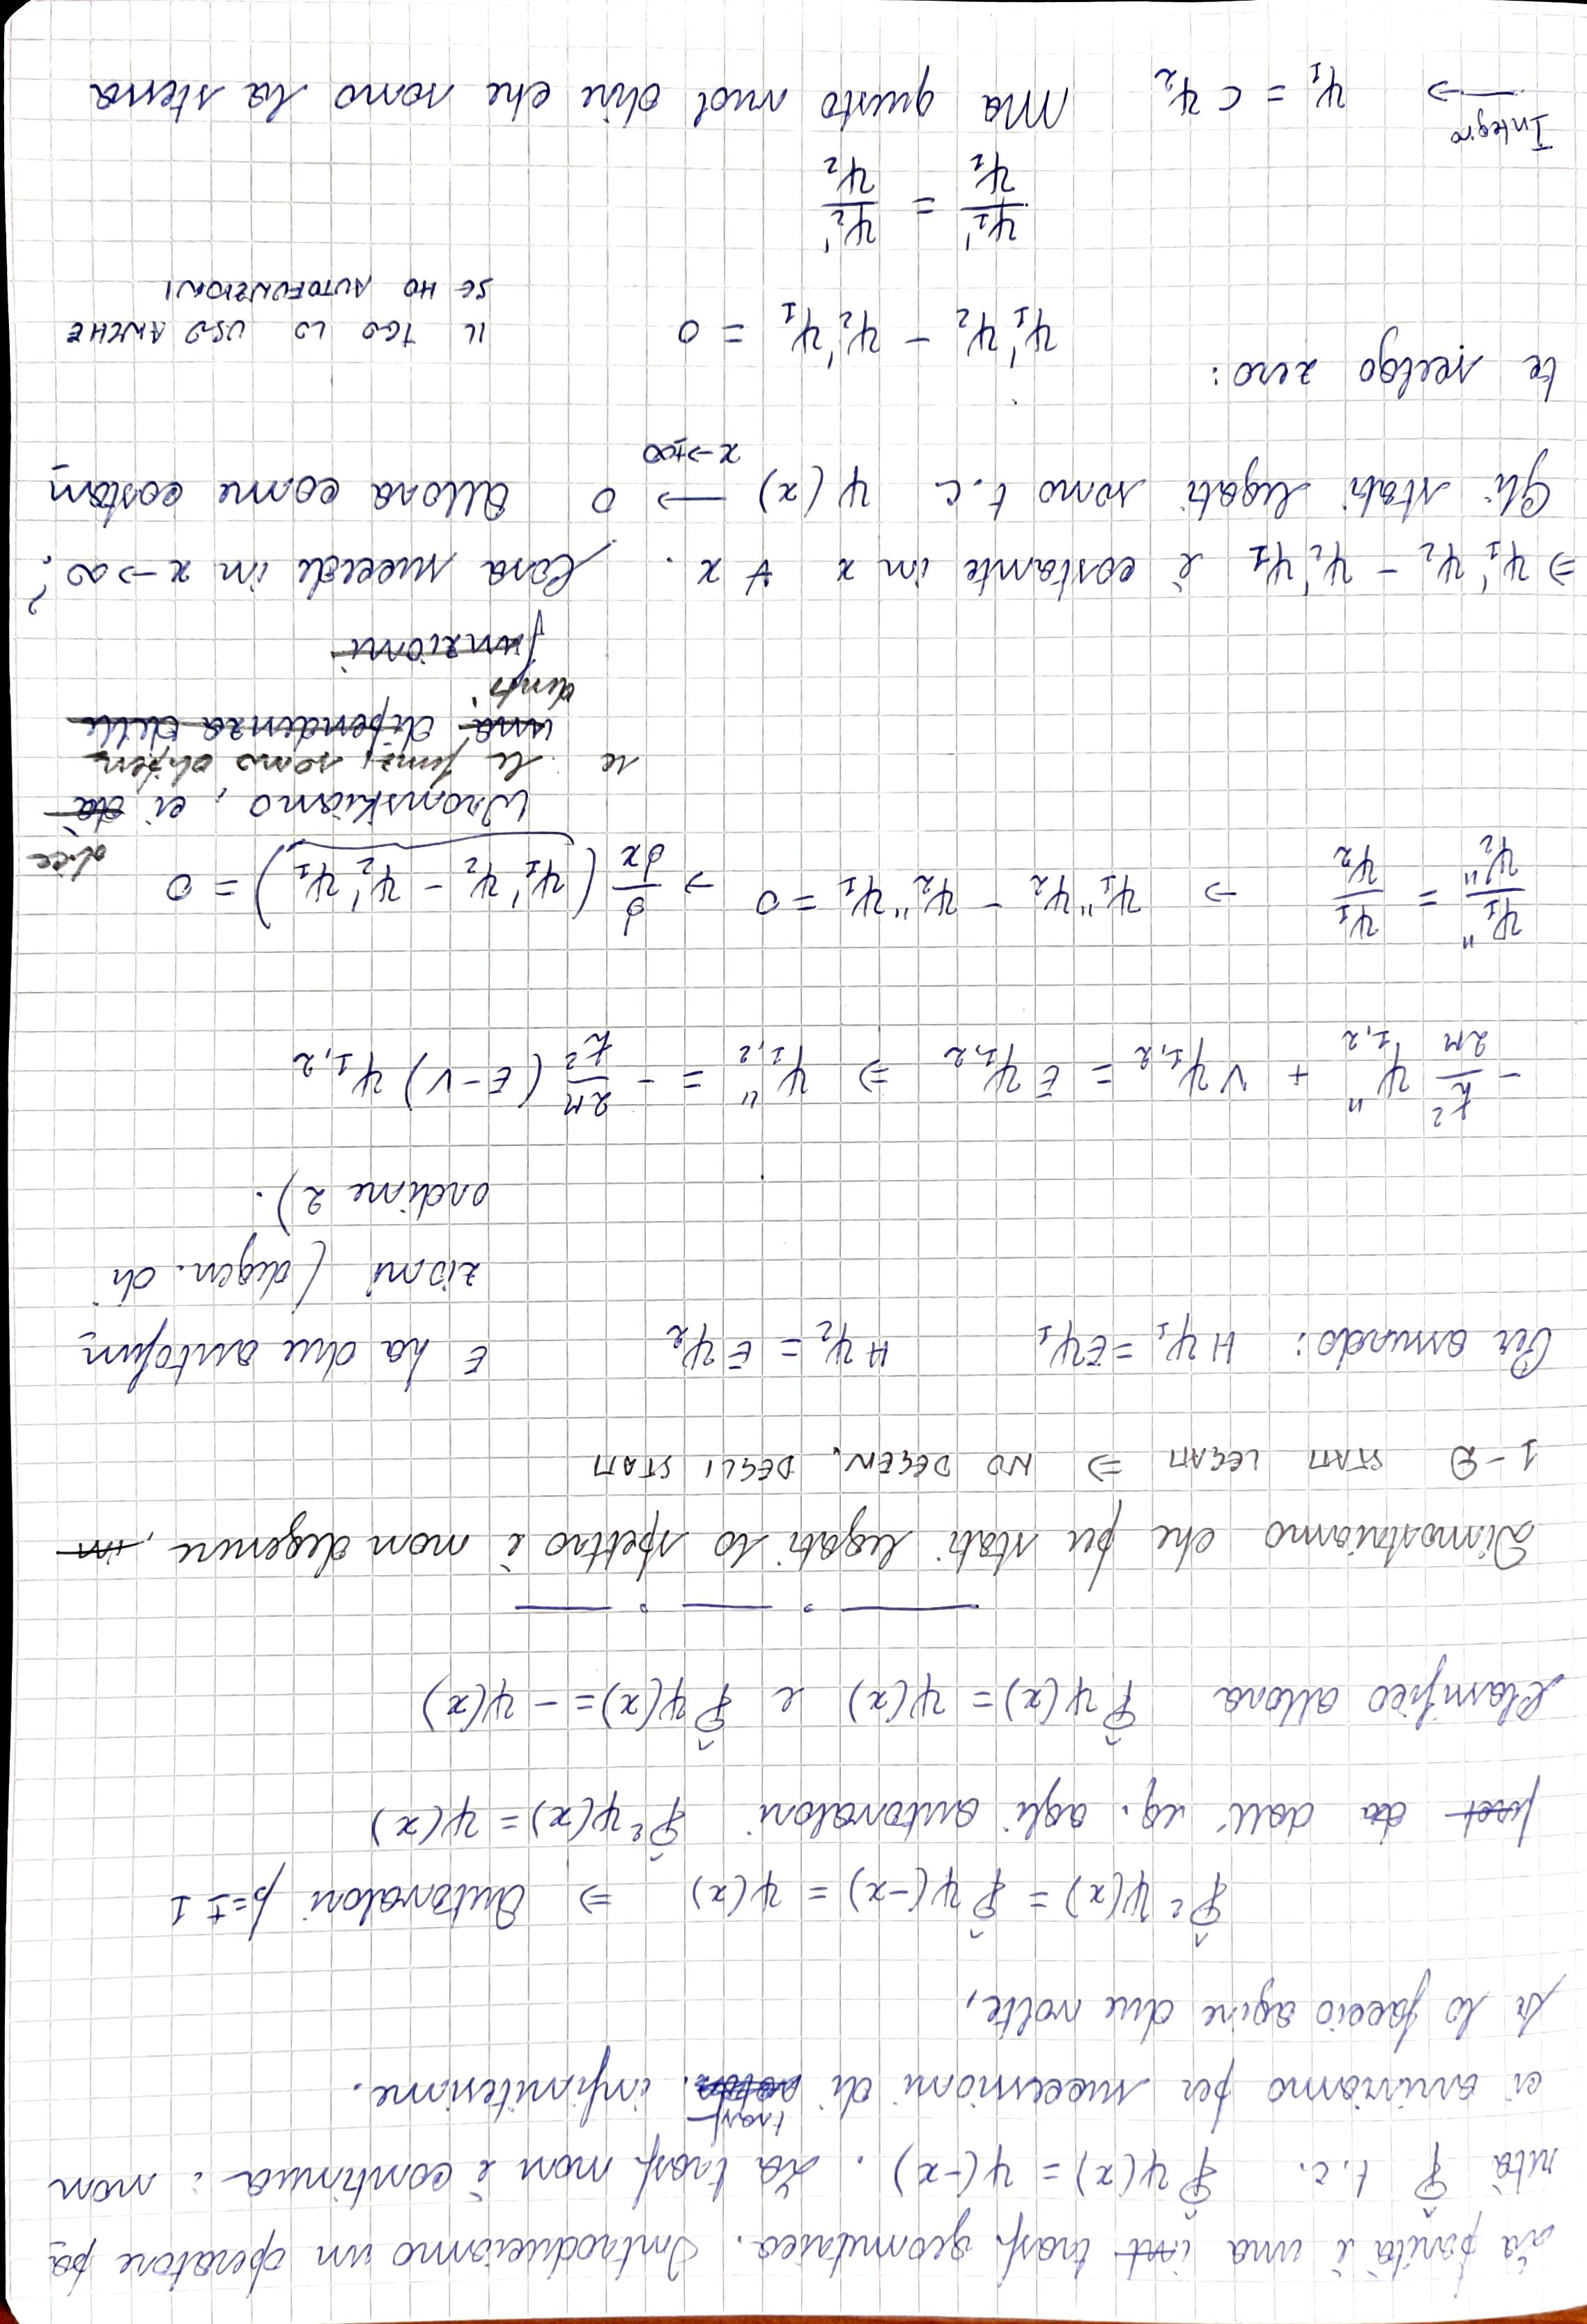 La parità è una int trasf. geometrica. Introduciamo un operatore pa
rità P̂ t.c. P̂ψ(x) = ψ(-x). La trasf. non è continua : non
ci arriviamo per successioni di trasf. infinitesime.
Se lo faccio agire due volte,
P̂²ψ(x) = P̂ψ(-x) = ψ(x) ⇒ Autovalori p=±1
da dall' eq. agli autovalori P̂²ψ(x) = ψ(x)
Classifico allora P̂ψ(x) = ψ(x) e P̂ψ(x) = -ψ(x)
Dimostriamo che per stati legati lo spettro è non degenere, in
1-D STATI LEGATI ⇒ NO DEGEN. DEGLI STATI
Per assurdo: Hψ₁ = Eψ₁ Hψ₂ = Eψ₂ E ha due autofun
zioni (degen. di
ordine 2).
-ħ²/2M ψ''₁,₂ + Vψ₁,₂ = Eψ₁,₂ ⇒ ψ''₁,₂ = -2M/ħ² (E-V) ψ₁,₂
ψ₁''/ψ₂'' = ψ₁/ψ₂ ⇒ ψ₁''ψ₂ - ψ₂''ψ₁ = 0 → d/dx (ψ₁'ψ₂ - ψ₂'ψ₁) = 0
Wronskiano, ci dà dice
se le funz. sono dipen
una dipendenza delle
denti
funzioni
⇒ ψ₁'ψ₂ - ψ₂'ψ₁ è costante in x ∀ x. Cosa succede in x→∞?
Gli stati legati sono t.c. ψ(x) → 0 x→±∞ allora come costan
te scelgo zero:
ψ₁'ψ₂ - ψ₂'ψ₁ = 0 IL TGO LO USO ANCHE
SE HO AUTOFUNZIONI
ψ₁'/ψ₁ = ψ₂'/ψ₂
Integro ⇒ ψ₁ = cψ₂ Ma questo vuol dire che sono la stessa